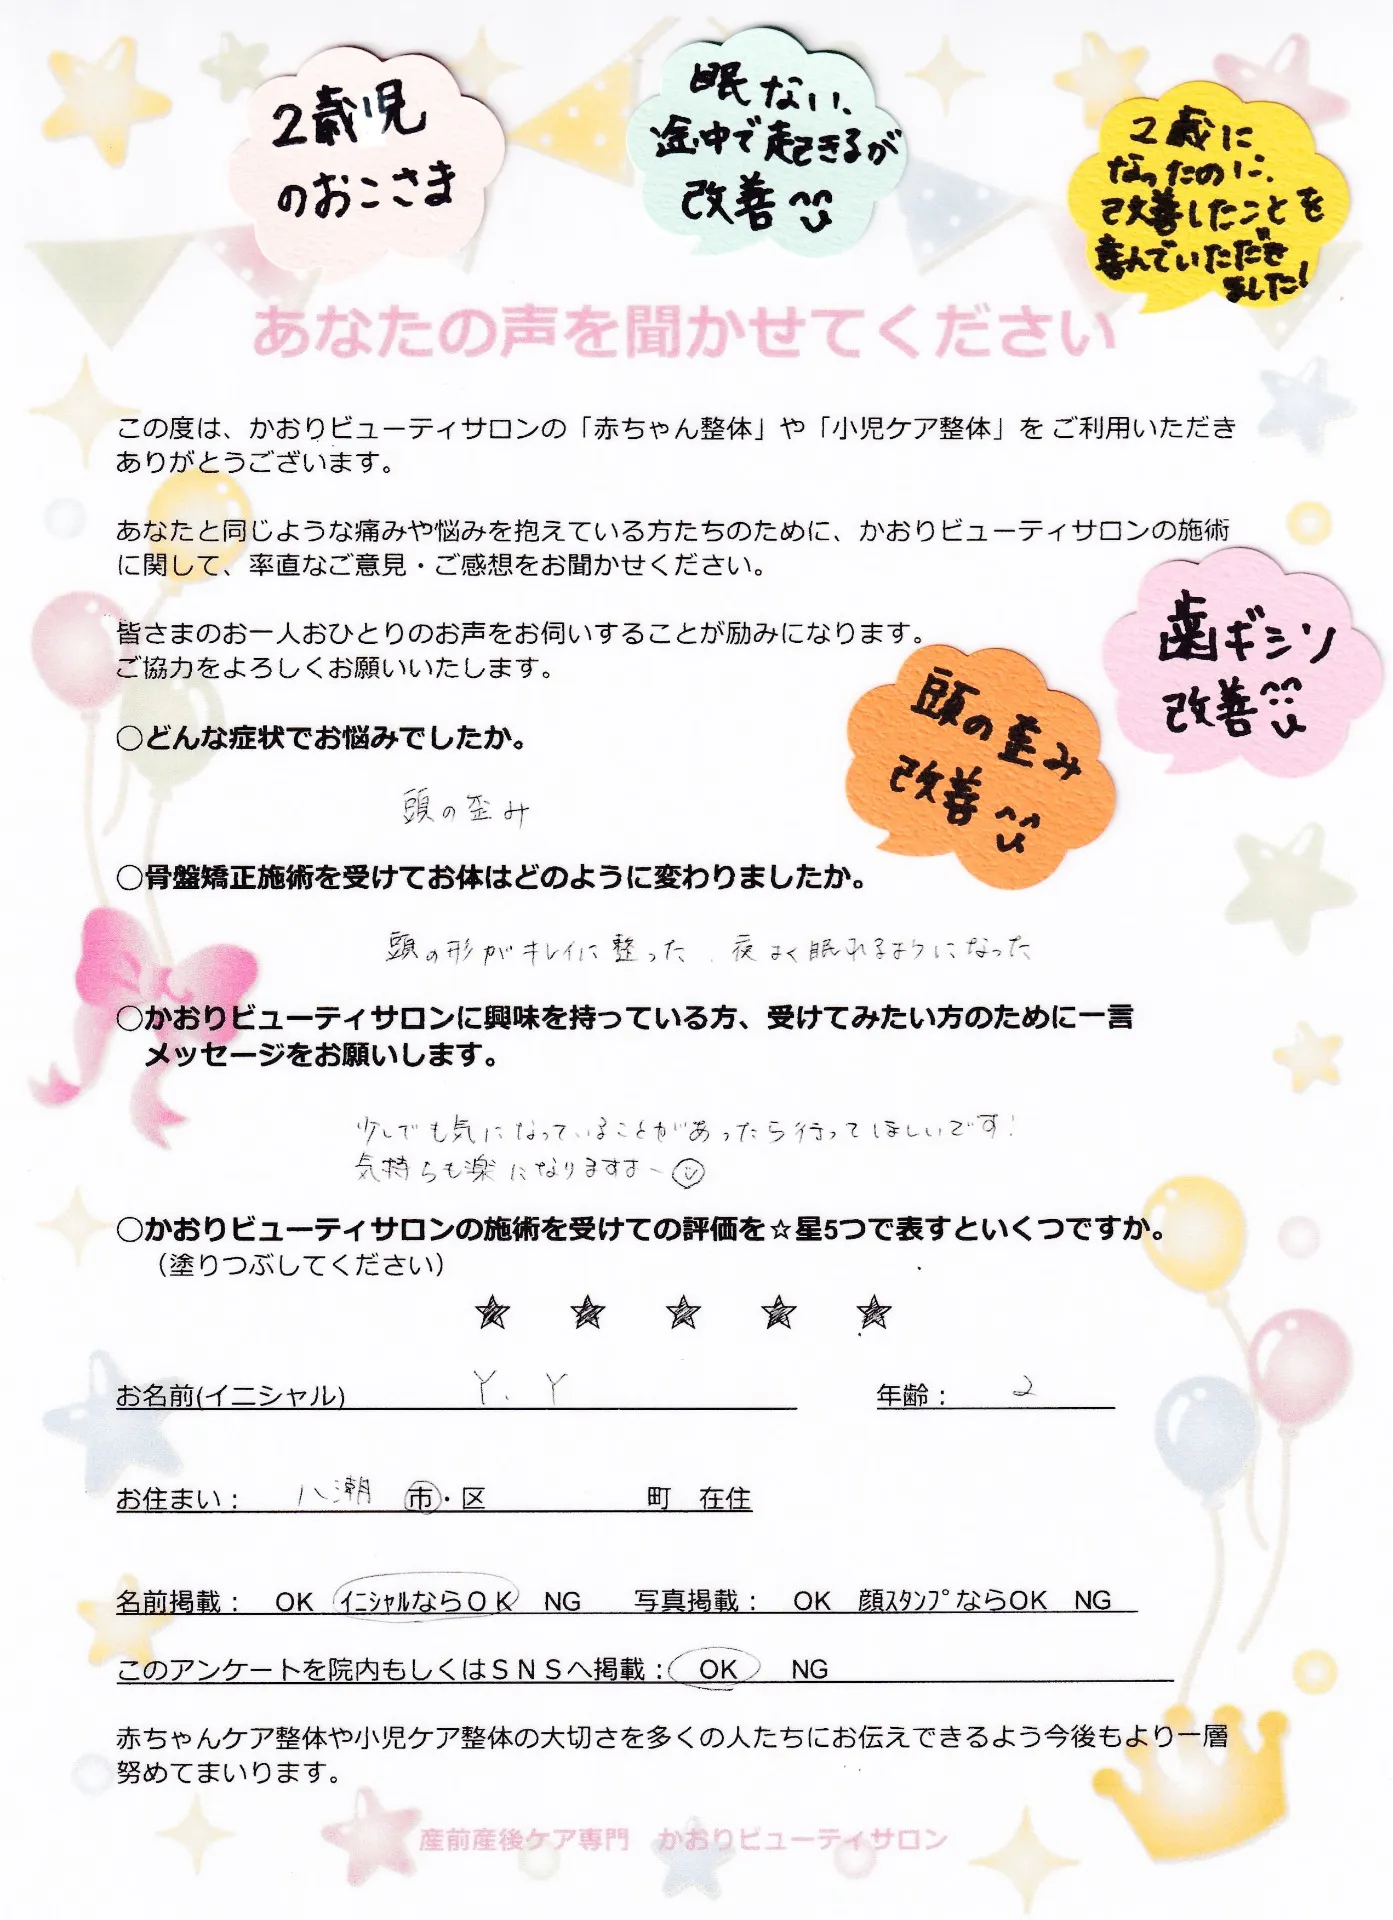 2歳児
のおこさま
眠ない、
途中で起きるが
改善
2歳に
なったのに、
改善したことを
喜んでいただき
ました!
あなたの声を聞かせてください
この度は、かおりビューティサロンの「赤ちゃん整体」や「小児ケア整体」をご利用いただき
ありがとうございます。
あなたと同じような痛みや悩みを抱えている方たちのために、かおりビューティサロンの施術
に関して、率直なご意見・ご感想をお聞かせください。
皆さまのお一人おひとりのお声をお伺いすることが励みになります。
ご協力をよろしくお願いいたします。
歯ギシリ
改善
頭の歪み
改善
○どんな症状でお悩みでしたか。
頭の歪み
○骨盤矯正施術を受けてお体はどのように変わりましたか。
頭の形がキレイに整った、夜よく眠れるようになった
○かおりビューティサロンに興味を持っている方、受けてみたい方のために一言
メッセージをお願いします。
少しでも気になっていることがあったら行ってほしいです!
気持ちも楽になりますよ~
○かおりビューティサロンの施術を受けての評価を☆星5つで表すといくつですか。
（塗りつぶしてください）
★ ★ ★ ★ ★
お名前(イニシャル) Y.Y 年齢： 2
お住まい： 八潮 市・区 町 在住
名前掲載： OK ｲﾆｼｬﾙならＯＫ NG 写真掲載： OK 顔ｽﾀﾝﾌﾟならOK NG
このアンケートを院内もしくはＳＮＳへ掲載： OK NG
赤ちゃんケア整体や小児ケア整体の大切さを多くの人たちにお伝えできるよう今後もより一層
努めてまいります。
産前産後ケア専門 かおりビューティサロン